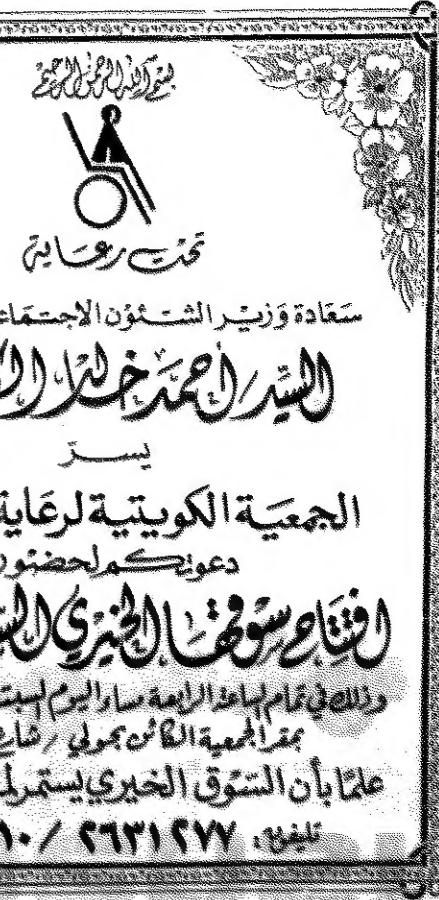 بسم الله الرحمن الرحيم
تحت رعاية
سعادة وزير الشئون الاجتماع
السيد/ أحمد خالد ال
يسر
الجمعية الكويتية لرعاية
دعوتكم لحضور
افتتاح سوقها الخيري الس
وذلك في تمام الساعة الرابعة مساء اليوم السبت
بمقر الجمعية الكائن بحولي / شارع
علمًا بأن السوق الخيري يستمر لم
تليفون: ٢٦٣١٢٧٧ / ١٠